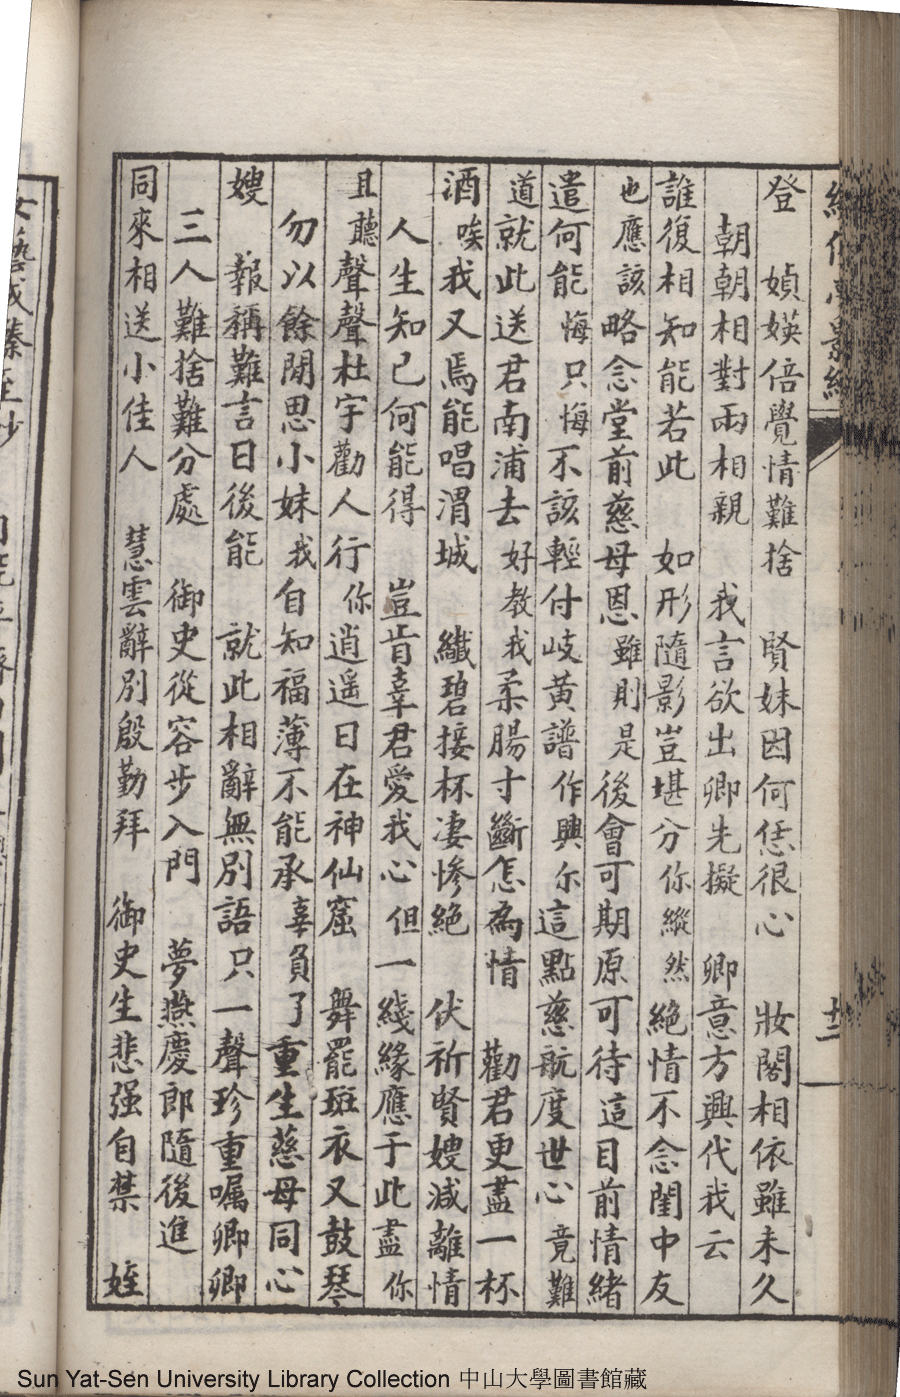 登　媜媖倍覺情難捨　賢妹因何恁很心　妝閣相依雖未久
朝朝相對兩相親　我言欲出卿先擬　卿意方興代我云
誰復相知能若此　如形隨影豈堪分你縱然絕情不念閨中友
也應該略念堂前慈母恩雖則是後會可期原可待這目前情緒
遣何能悔只悔不該輕付岐黃譜作興尔這點慈航度世心竟難
道就此送君南浦去好教我柔腸寸斷怎為情　勸君更盡一杯
酒唉我又焉能唱渭城　纖碧接杯凄慘絕　伏祈賢嫂減離情
人生知己何能得　豈肯辜君愛我心但一綫緣應于此盡你
且聽聲聲杜宇勸人行你逍遥日在神仙窟　舞罷斑衣又鼓琴
勿以餘閒思小妹我自知福薄不能承辜負了重生慈母同心
嫂　報稱難言日後能　就此相辭無別語只一聲珍重囑卿卿
三人難捨難分處　御史從容步入門　夢燕慶郎隨後進
同來相送小佳人　慧雲辭別殷勤拜　御史生悲强自禁　姪
Sun Yat-Sen University Library Collection 中山大學圖書館藏